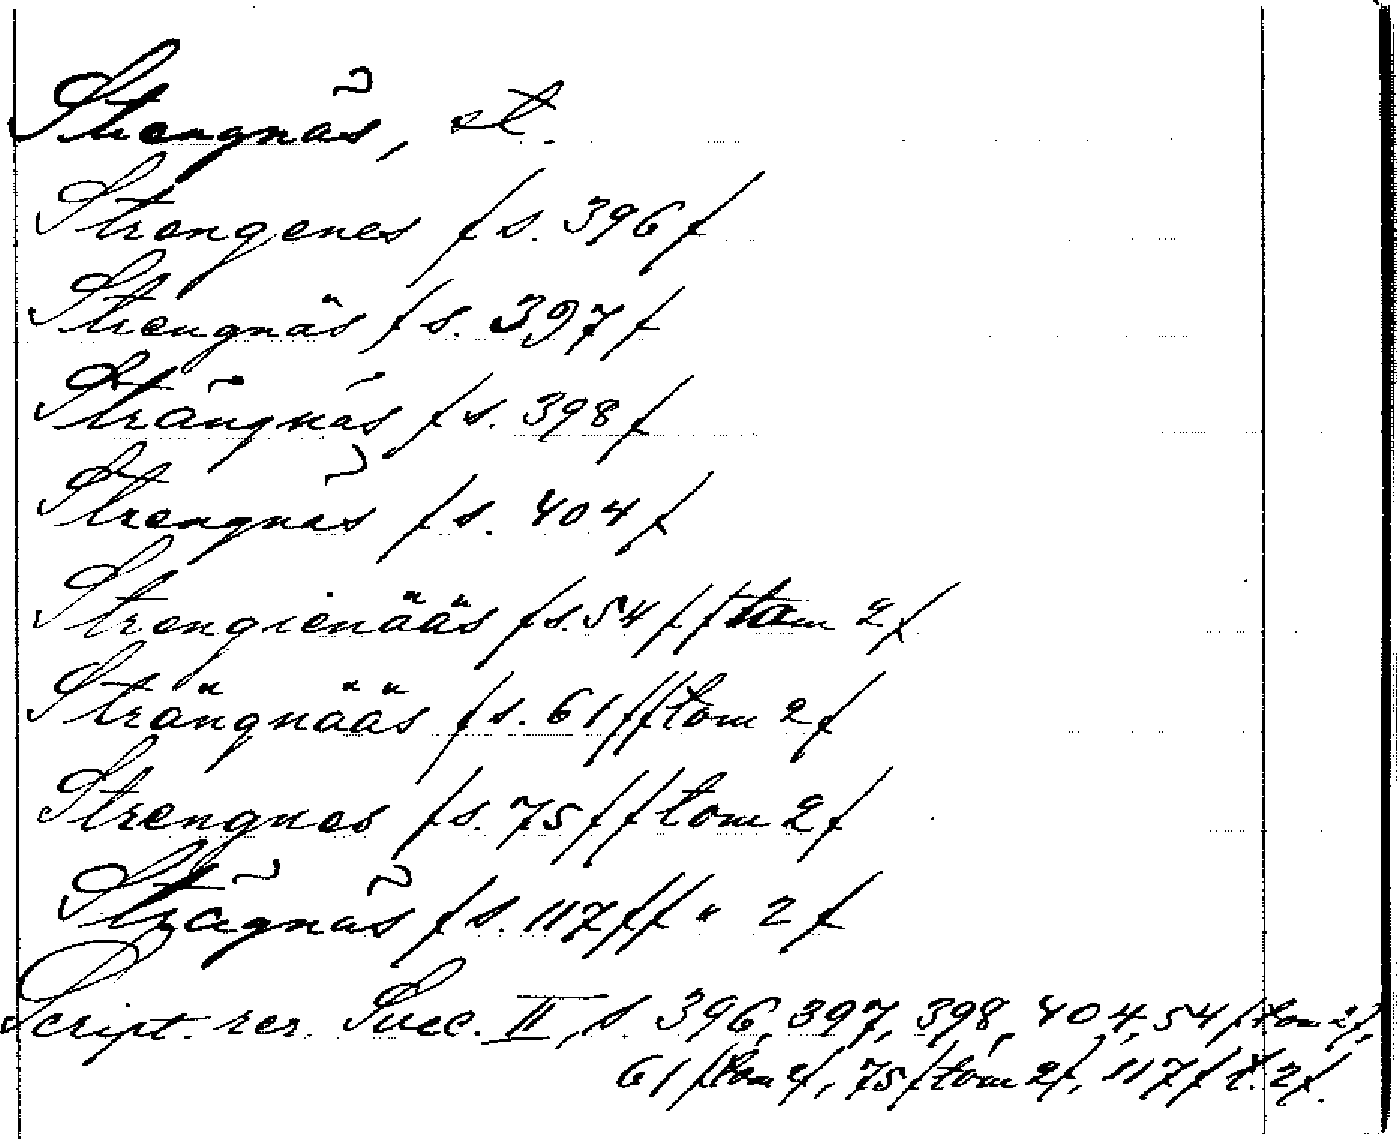 Strengnäs, st.
Strengenes /s. 396/
Strengnäs /s. 397/
Strängnäs /s. 398/
Strengnäs /s. 404/
Strengienääs /s. 54/ /tom 2/
Strängnääs /s. 61/ /tom 2/
Strengnes /s. 75/ /tom 2/
Strägnäs /s. 117/ / " 2/
Script. rer. Suec. II, s. 396, 397, 398, 404, 54 /tom 2/,
61 /tom 2/, 75 /tom 2/, 117 / t. 2/.